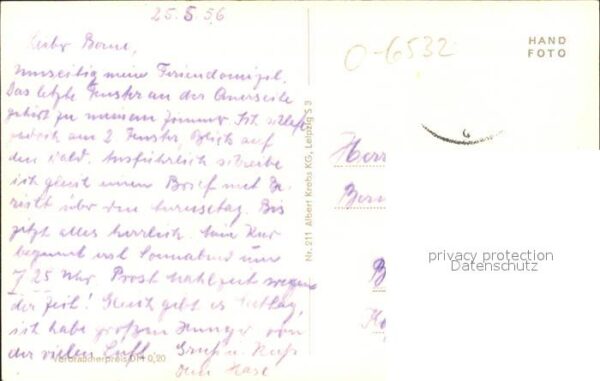 25.5.56
Lieber Bernd,
umseitig mein Feriendomizil.
Das letzte Fenster an der Querseite
gehört zu meinem Zimmer. Ist
2 Fenster, Blick auf
den Wald. Ausführlich schreibe
ich gleich einen Brief mit Be
richt über den Bis
jetzt alles herrlich. Kur
beginnt erst Sonnabend um
7 25 Uhr. Prost Mahlzeit wegen
der Zeit! Gleich gibt es Mittag,
ich habe großen Hunger von
der vielen Luft. Gruß u. Kuß
Dein Hase
Verbraucherpreis DM 0,20
Nr. 211 Albert Krebs KG, Leipzig S 3
HAND
FOTO
0-6532
6
Herr
Ber
B
privacy protection
Datenschutz